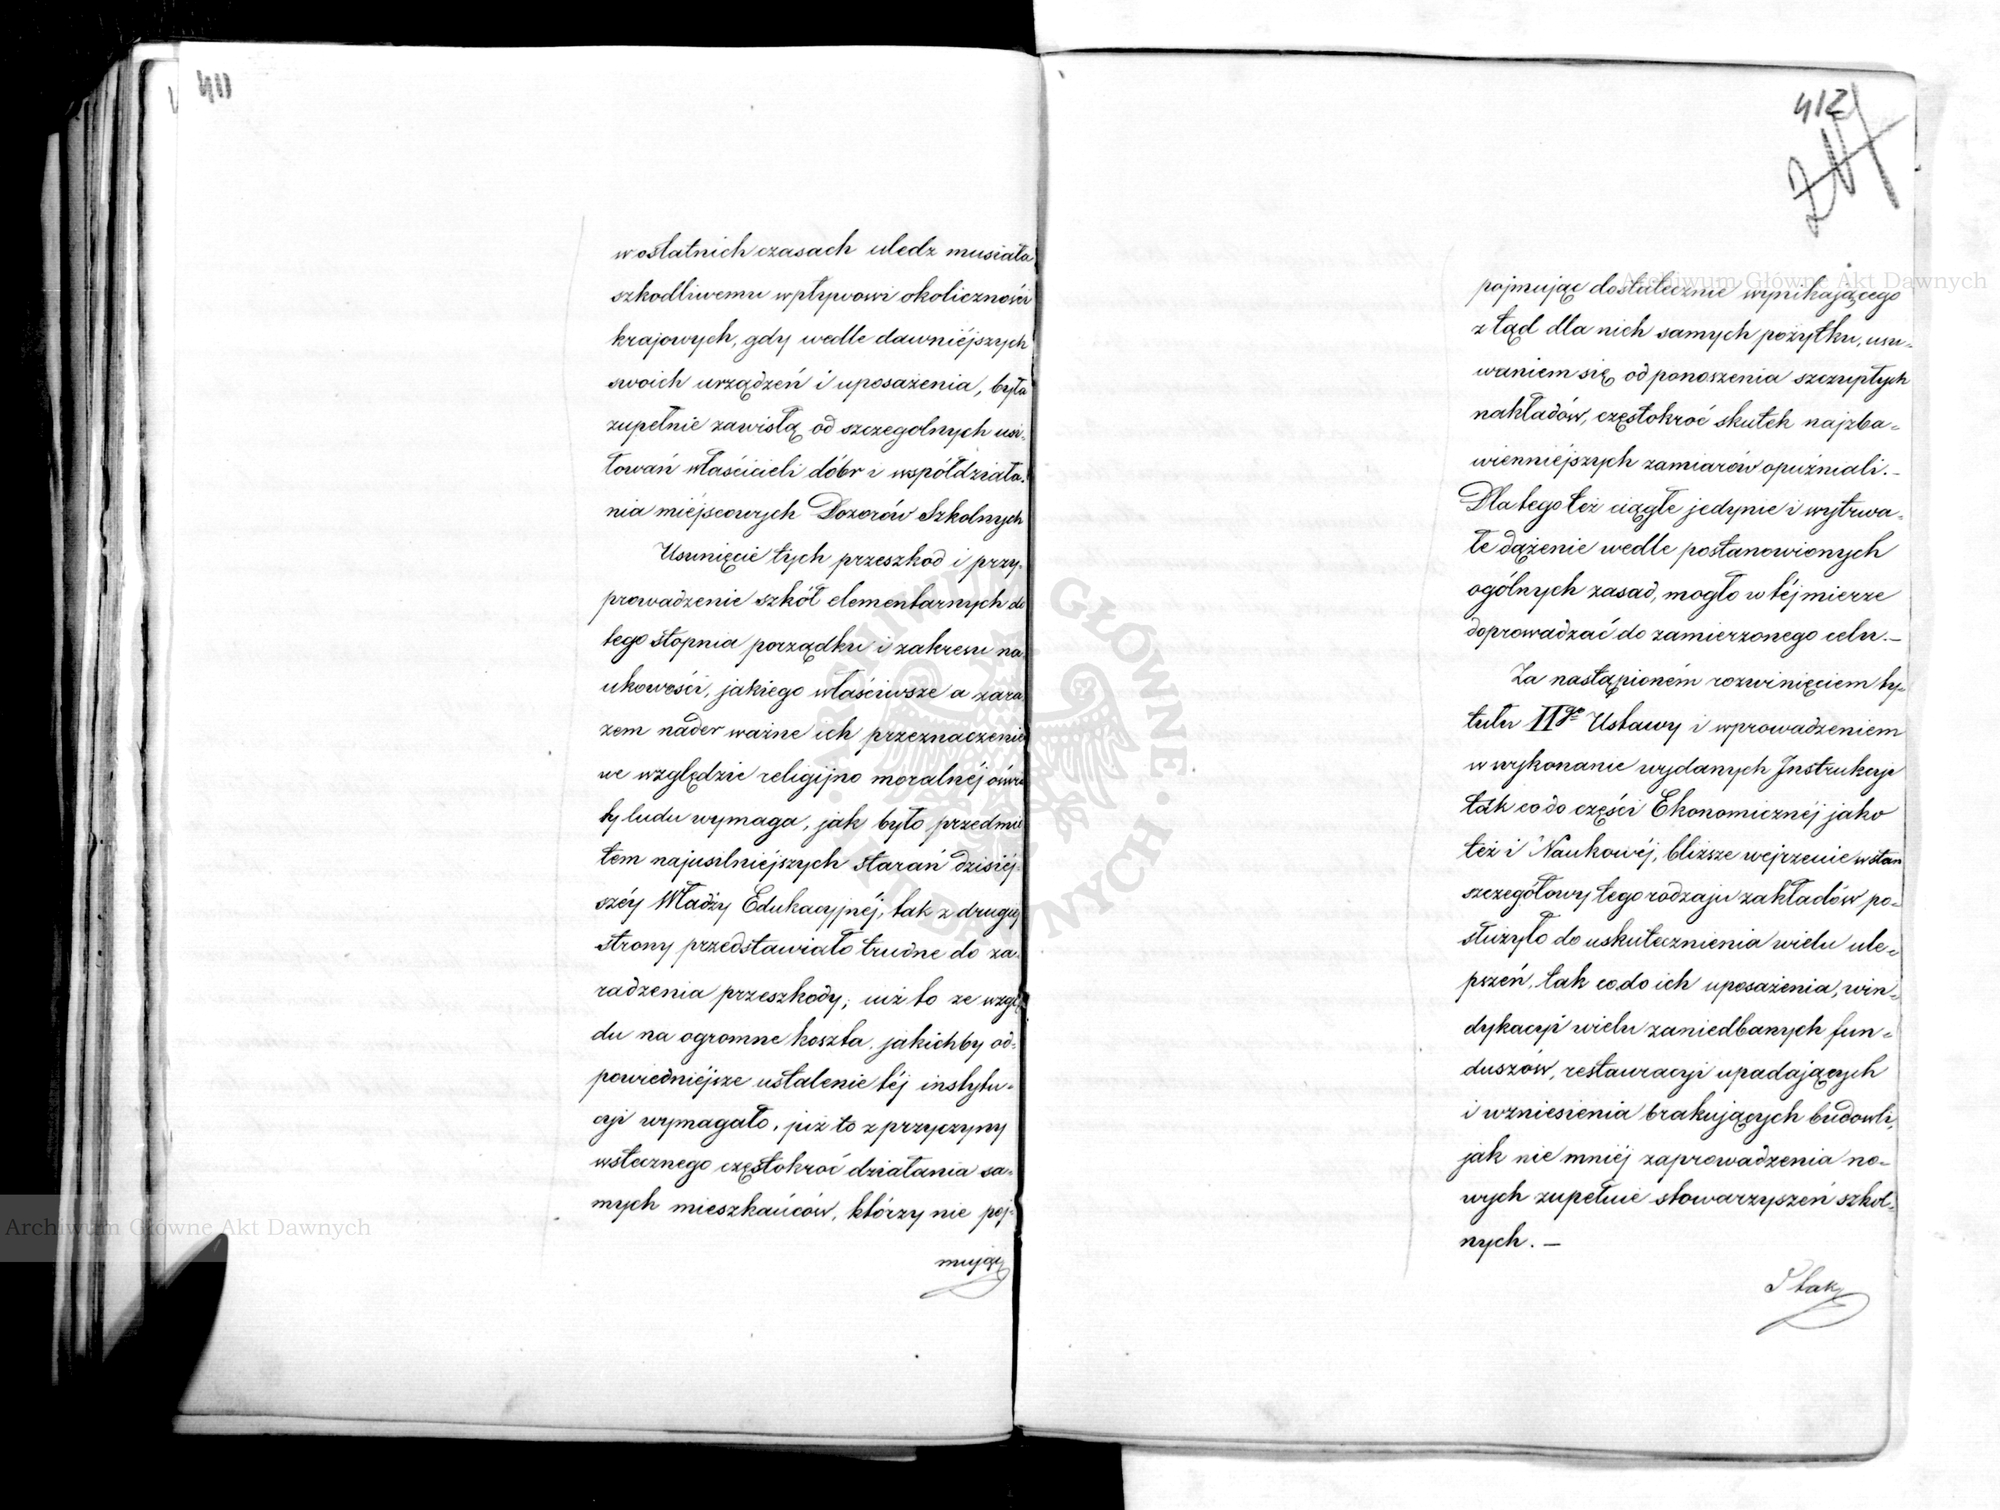 411
w ostatnich czasach uledz musiała
szkodliwemu wpływowi okoliczności
krajowych, gdy wedle dawniéjszych
swoich urządzeń i uposażenia, była
zupełnie zawisłą od szczegolnych usi-
łowań właścicieli dóbr i współdziała-
nia miéjscowych Dozorów Szkolnych
Usunięcie tych przeszkod i przy-
prowadzenie szkół elementarnych do
tego stopnia porządku i zakresu na-
ukowości, jakiego właściwsze a zara-
zem nader ważne ich przeznaczenie
we względzie religijno moralnéj oświa
ty ludu wymaga, jak było przedmio
tem najusilniéjszych starań dzisiéj-
széy Władzy Edukacyjnéj, tak z drugiéj
strony przedstawiało trudne do za-
radzenia przeszkody, iuż to ze wzglę
du na ogromne koszta, jakichby od-
powiedniéjsze ustalenie téj instytu-
cyi wymagało, już to z przyczyny
wstecznego częstokroć działania sa-
mych mieszkańców, którzy nie poj-
mując
412
pojmując dostatecznie wynikającego
z tąd dla nich samych pożytku, usu-
waniem się od ponoszenia szczupłych
nakładów, częstokroć skutek najzba-
wienniéjszych zamiarów opuźniali. –
Dla tego też ciągłe jedynie i wytrwa-
łe dążenie wedle postanowionych
ogólnych zasad, mogło w téj mierze
doprowadzać do zamierzonego celu. –
Za nastąpioném rozwinięciem ty-
tułu IIgo Ustawy i wprowadzeniem
w wykonanie wydanych Instrukcyi
tak co do części Ekonomicznéj jako
też i Naukowéj, bliższe wejrzenie w stan
szczegółowy tego rodzaju zakładów po-
służyło do uskutecznienia wielu ule-
pszeń, tak co do ich uposażenia, win-
dykacyi wielu zaniedbanych fun-
duszów, restauracyi upadających
i wzniesienia brakujących budowli,
jak nie mniéj zaprowadzenia no-
wych zupełnie stowarzyszeń szkol-
nych. –
I tak
Archiwum Główne Akt Dawnych
Archiwum Główne Akt Dawnych
ARCHIWUM GŁÓWNE AKT DAWNYCH